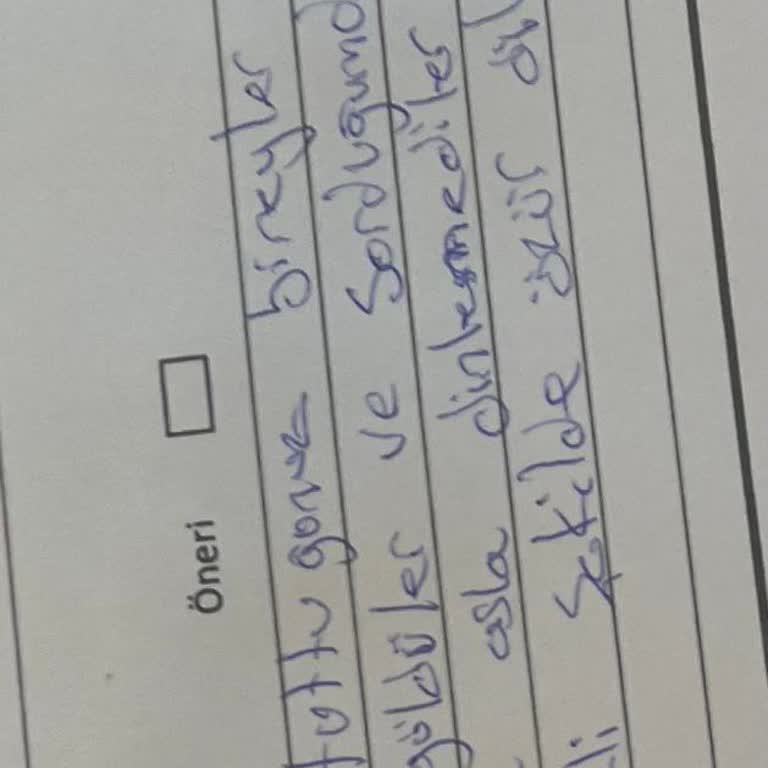 Öneri
tuttu sonra birşeyler
güldüler ve Sorduğumd
asla dinlemediler
li Şekilde özür dil